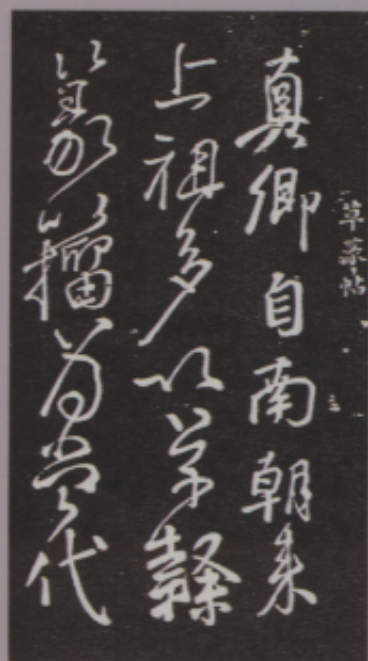 草篆帖
真卿自南朝来
上祖多以草隸
篆籀为當代